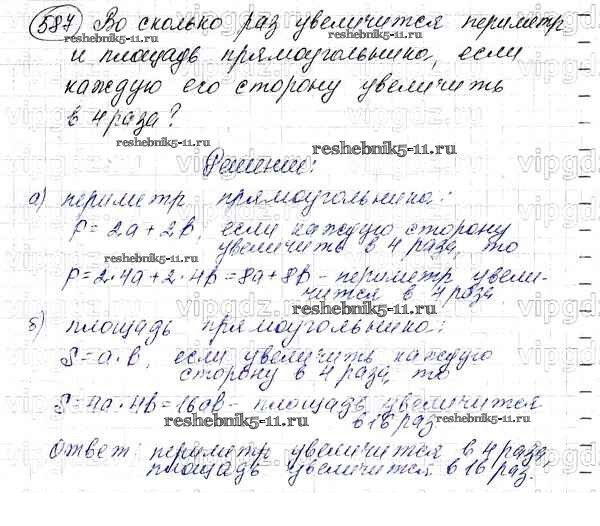 587 Во сколько раз увеличится периметр
reshebnik5-11.ru reshebnik5-11.ru
и площадь прямоугольника, если
каждую его сторону увеличить
в 4 раза?
reshebnik5-11.ru
Решение:
а) периметр прямоугольника:
P = 2a + 2b, если каждую сторону
увеличить в 4 раза, то
P = 2·4a + 2·4b = 8a + 8b - периметр увели-
чится в 4 раза
reshebnik5-11.ru
б) площадь прямоугольника:
S = a·b, если увеличить каждую
сторону в 4 раза, то
S = 4a·4b = 16ab - площадь увеличится
в 16 раз
reshebnik5-11.ru reshebnik5-11.ru
Ответ: периметр увеличится в 4 раза,
площадь увеличится в 16 раз.